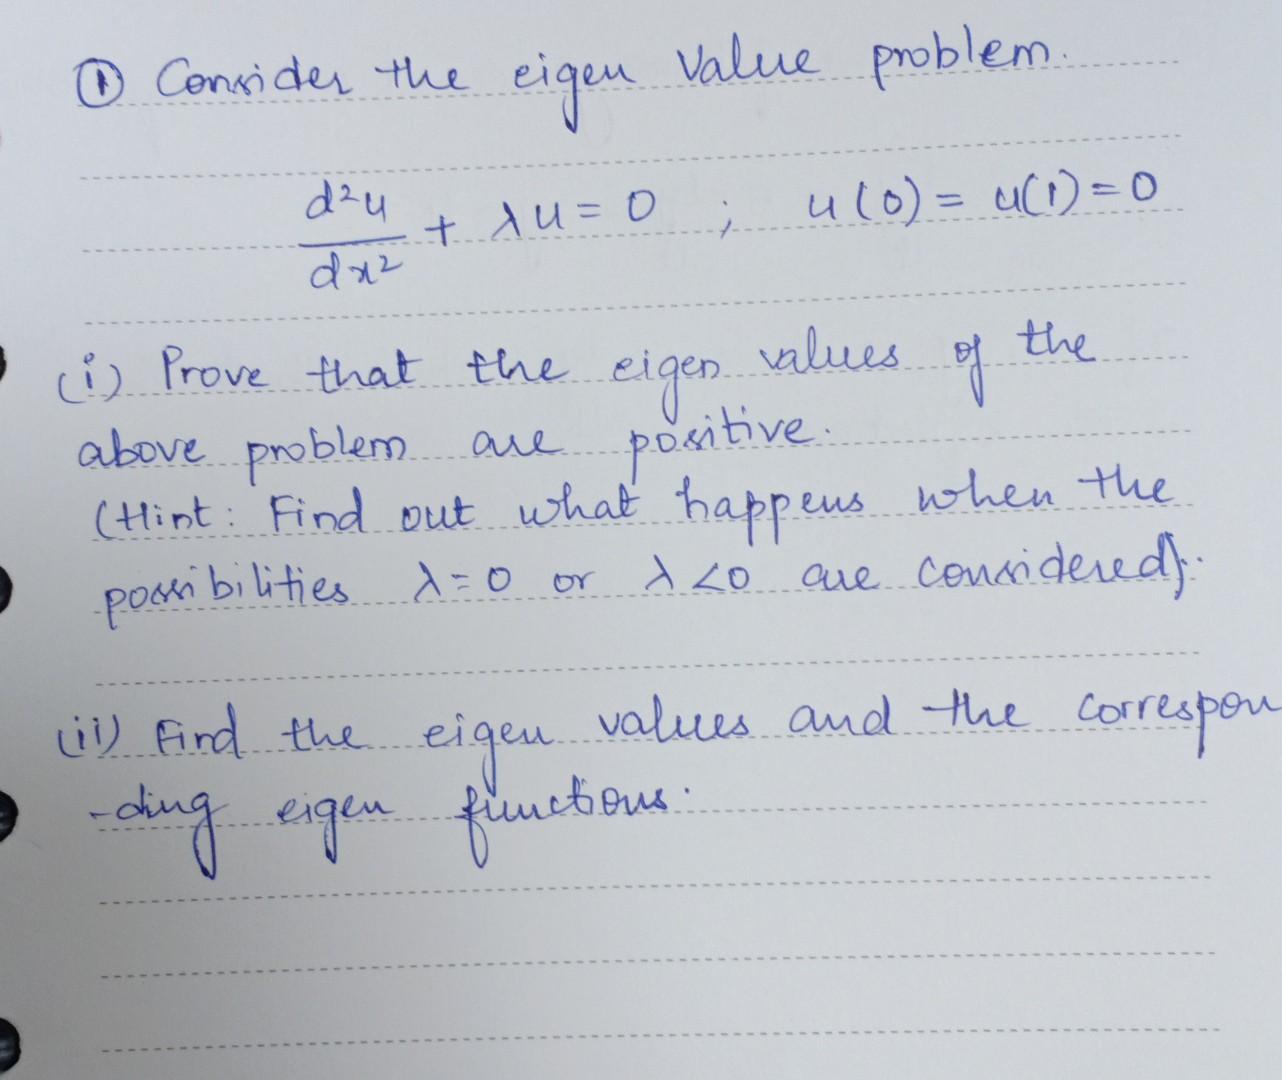 ① Consider the eigen value problem.
d²u/dx² + λu = 0 ; u(0) = u(1) = 0
(i) Prove that the eigen values of the
above problem are positive.
(Hint: Find out what happens when the
possibilities λ=0 or λ<0 are considered).
(ii) Find the eigen values and the correspon
-ding eigen functions.